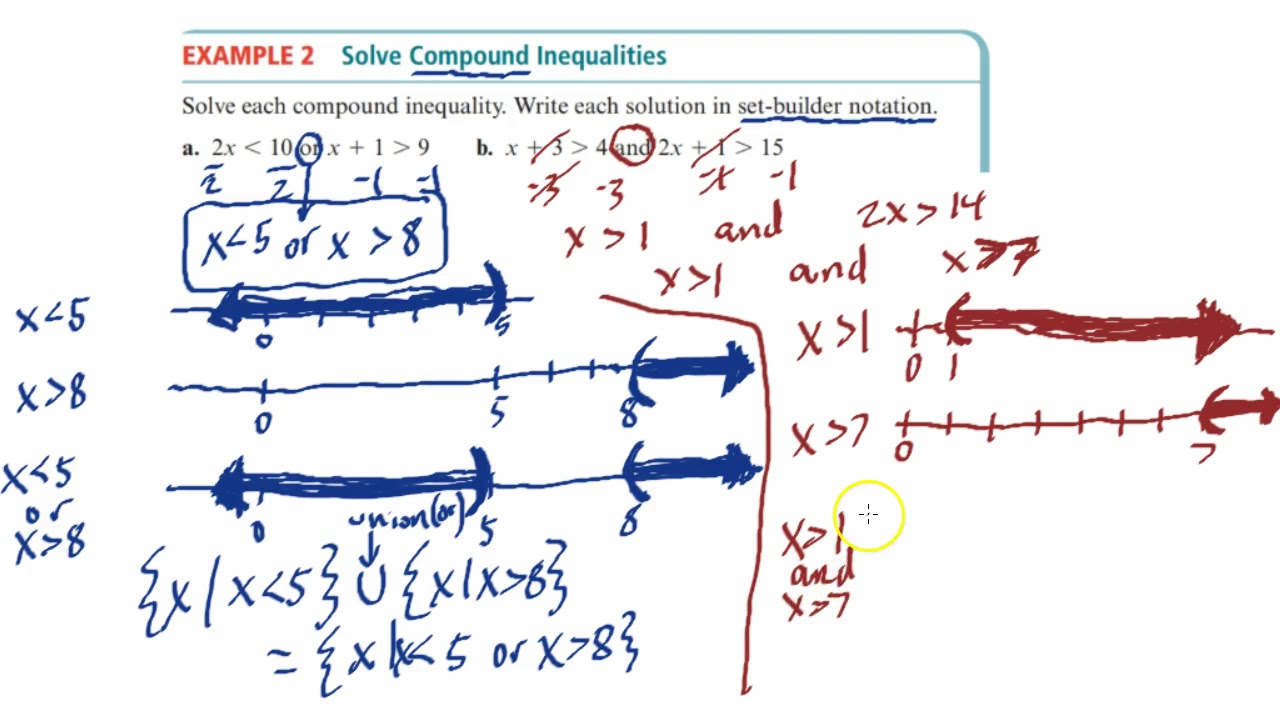 EXAMPLE 2 Solve Compound Inequalities
Solve each compound inequality. Write each solution in set-builder notation.
a. 2x < 10 or x + 1 > 9 b. x + 3 > 4 and 2x + 1 > 15
2 2 -1 -1
-3 -3 -1 -1
x<5 or x >8
x >1 and 2x>14
x>1 and x>7
x<5
0 5
x>8
0 5 8
x<5
or
x>8
0 union(or) 5 8
{x|x<5} ∪ {x|x>8}
= {x|x<5 or x>8}
x>1
0 1
x>7
0 7
x>1
and
x>7